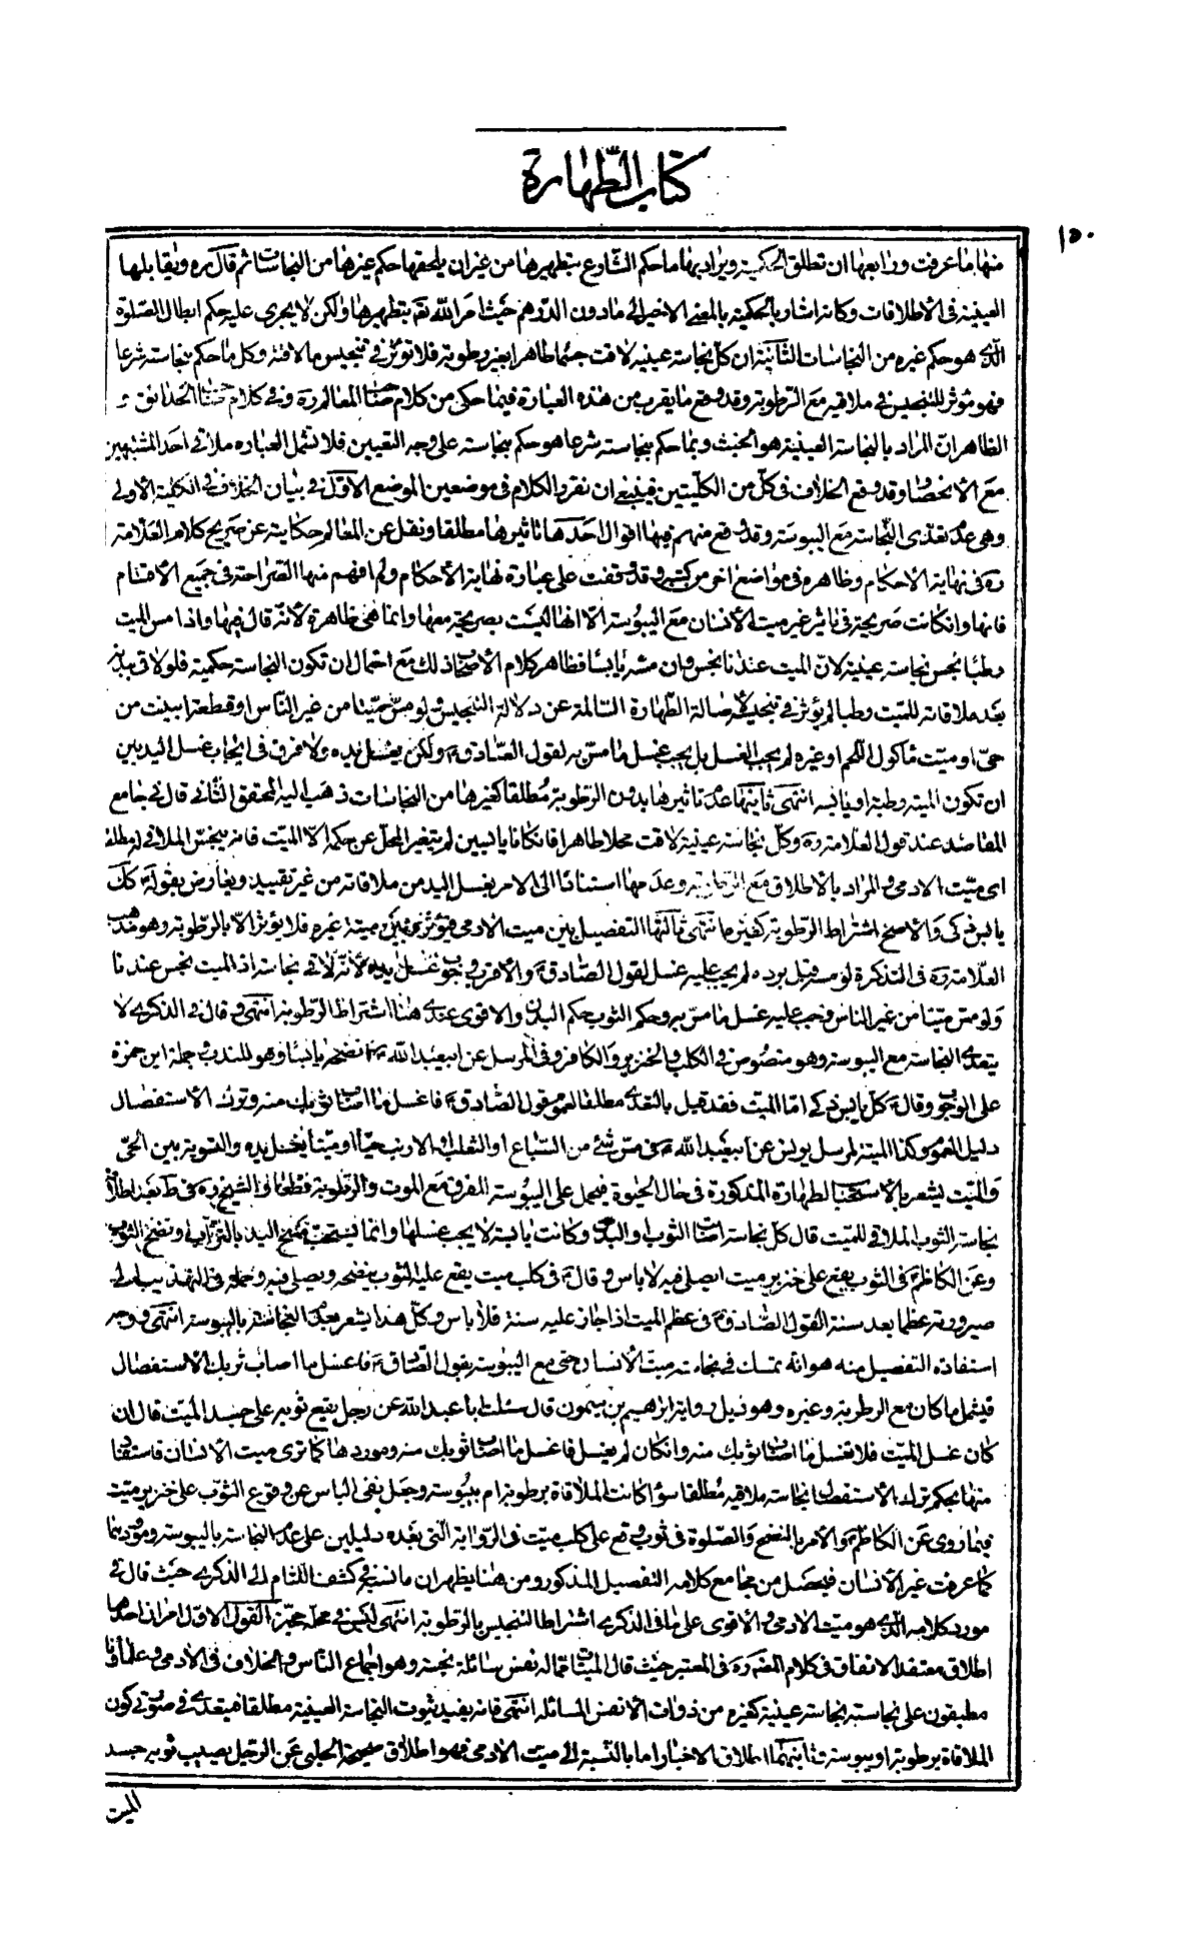 كتاب الطّهارة
١٥٠
منها ما عرفت ورابعها ان تطلق الحكمية ويراد بها ما حكم الشارع بتطهيرها من غير ان يلحقها حكم غيرها من النجاسات ثم قال ره ويقابلها
العينية فى الاطلاقات وكانه اشار بالحكمية بالمعنى الاخير الى ما دون الدرهم حيث امر الله تع بتطهيرها ولكن لا يجرى عليه حكم ابطال الصّلوة
الّذى هو حكم غيره من النجاسات الثانية ان كل نجاسة عينية لاقت جسما طاهرا بغير رطوبة فلا تؤثر فى تنجيس ما لاقته وكل ما حكم بنجاسته شرعا
فهو يؤثر التنجيس فى ملاقيه مع الرّطوبة وقد وقع ما يقرب من هذه العبارة فيما حكى من كلام صاحب المعالم ره وفى كلام صاحب الحدائق و
الظاهر ان المراد بالنجاسة العينية هو الخبث وبما حكم بنجاسته شرعا هو حكم بنجاسته على وجه التعيين فلا تشمل العبارة ملاقى احد المشتبهين
مع الانحصار وقد وقع الخلاف فى كلّ من الكليّتين فينبغى ان نفرد الكلام فى موضعين الموضع الاوّل فى بيان الخلاف فى الكلية الاولى
وهى عدم تعدّى النّجاسة مع اليبوسة وقد وقع منهم فيها اقوال احدها تاثيرها مطلقا ونقل عن المعالم حكايته عن صريح كلام العلامة
ره فى نهاية الاحكام وظاهره فى مواضع اخر من كتبه وقد وقفت على عبارة نهاية الأحكام ولم افهم منها الصراحة فى جميع الاقسام
فانها وان كانت صريحة فى تاثير غير ميت الأنسان مع اليبوسة الا انها ليست بصريحة معها وانما هى ظاهرة لانّه قال فيها واذا مس الميت
رطبا نجس نجاسة عينية لانّ الميت عندنا نجس وان مسّه يابسا فظاهر كلام الأصحاب ذلك مع احتمال ان تكون النجاسة حكمية فلو لاقى ببدنه
بعد ملاقاته للميّت رطبا لم يؤثر فى تنجيسه لاصالة الطّهارة السّالمة عن دلالة التنجيس ولو مسّ ميّتا من غير النّاس او قطعة ابينت من
حىّ او ميّت ماكول اللحم او غيره لم يجب الغسل بل يجب غسل ما مسّ به لقول الصّادق ع ولكن يغسل يده ولا فرق فى ايجاب غسل اليد بين
ان تكون الميتة رطبة او يابسة انتهى ثانيها عدم تاثيرها بدون الرطوبة مطلقا كغيرها من النجاسات ذهب اليه المحقق الثانى قال فى جامع
المقاصد عند قول العلامة ره وكلّ نجاسة عينية لاقت محلا طاهرا فان كانا يابسين لم يتغير المحل عن حكمه الّا الميّت فانه ينجس الملاقى له مطلقا
اى ميّت الادمى والمراد بالاطلاق مع الرطوبة وعدمها استنادا الى الامر بغسل اليد من ملاقاته من غير تقييد ويعارض بقوله ع كل
يابس ذكى والأصح اشتراط الرّطوبة كغيره انتهى ثالثها التفصيل بين ميت الآدمى فيؤثر وبين ميتة غيره فلا يؤثر الّا بالرّطوبة وهو مذهب
العلّامة ره فى التذكرة لو مسه قبل برده لم يجب عليه غسل لقول الصّادق ع والأقرب وجوب غسل يده لانّه لاقى نجاسة اذ الميت نجس عندنا
ولو مسّ ميتا من غير الناس وجب عليه غسل ما مسّ به وحكم الثوب حكم البدن والاقوى عندى هنا اشتراط الرّطوبة انتهى وقال فى الذكرى لا
يتعدّى النجاسة مع اليبوسة وهو منصوص فى الكلب والخنزير والكافر وفى المرسل عن ابيعبد الله ع نضحه يابسا وهو للندب وحمله ابن حمزة
على الوجوب وقال ع كلّ يابس ذكى امّا الميّت فقد قيل بالتعدى مطلقا لعموم قول الصّادق ع فاغسل ما اصاب ثوبك منه وترك الأستفصال
دليل العموم وكذا الميتة لمرسل يونس عن ابيعبد الله ع فى مسّ شئ من السّباع او الثعلب والارنب حيّا او ميّتا يغسل يده والتسوية بين الحىّ
والميّت يشعر بالاستحباب لطهارة المذكورة فى حال الحيوة فيحمل على اليبوسة للفرق مع الموت والرّطوبة قطعا والشيخ ره فى ط بعد اطلاق
نجاسة الثوب الملاقى للميّت قال كل نجاسة اصابت الثوب او البدن وكانت يابسة لا يجب غسلها وانما يستحبّ مسح اليد بالتراب او نضح الثوب
وعن الكاظم ع فى الثوب يقع على خنزير ميت ايصلى فيه لا باس وقال ع فى كلب ميت يقع عليه الثوب ينضحه ويصلى فيه وحمله فى التهذيب على
صيرورته عظما بعد سنة لقول الصّادق ع فى عظم الميت اذا جاز عليه سنة فلا باس وكلّ هذا يشعر بعدم النجاسة باليبوسة انتهى ووجه
استفادة التفصيل منه هو انّه تمسّك فى نجاسة ميت الأنسان حتى مع اليبوسة بقول الصّادق ع فاغسل ما اصاب ثوبك الاستفصال
فيشمل ما كان مع الرطوبة وغيره وهو ذيل رواية ابراهيم بن ميمون قال سئلت ابا عبد الله عن رجل يقع ثوبه على جسد الميّت قال ان
كان غسل الميّت فلا تغسل ما اصاب ثوبك منه وان كان لم يغسل فاغسل ما اصاب ثوبك منه وموردها كما ترى ميت الأنسان فاستفدنا
منها بحكم ترك الأستفصال نجاسة ملاقيه مطلقا سواء كانت الملاقاة برطوبة ام بيبوسة وجعل نفى الباس عن وقوع الثوب على خنزير ميّت
فيما روى عن الكاظم ع والامر بالنضح والصّلوة فى ثوب وقع على كلب ميّت فى الرّواية الّتى بعده دليلين على عدم النجاسة باليبوسة وموردهما
كما عرفت غير الأنسان فيحصل من مجامع كلامه التفصيل المذكور ومن هنا يظهر ان ما نسبه فى كشف اللثام الى الذكرى حيث قال فى
مورد كلامه الّذى هو ميّت الادمى والأقوى على ما فى الذكرى اشتراط التنجيس بالرطوبة انتهى ليس فى محلّه حجّة القول الاوّل امران احدهما
اطلاق معتقد الاتفاق فى كلام المص ره فى المعتبر حيث قال الميتات مما له نفس سائلة نجسة وهو اجماع النّاس والخلاف فى الآدمى وعلماؤنا
مطبقون على نجاسته نجاسة عينية كغيره من ذوات الأنفس السائلة انتهى فانه يفيد ثبوت النجاسة العينية مطلقا فيتعدى فى صورتى كون
الملاقاة برطوبة او يبوسة وثانيهما اطلاق الاخبار اما بالنّسبة الى ميت الادمى فهو اطلاق صحيحة الحلبى عن الرّجل يصيب ثوبه جسد
الميت